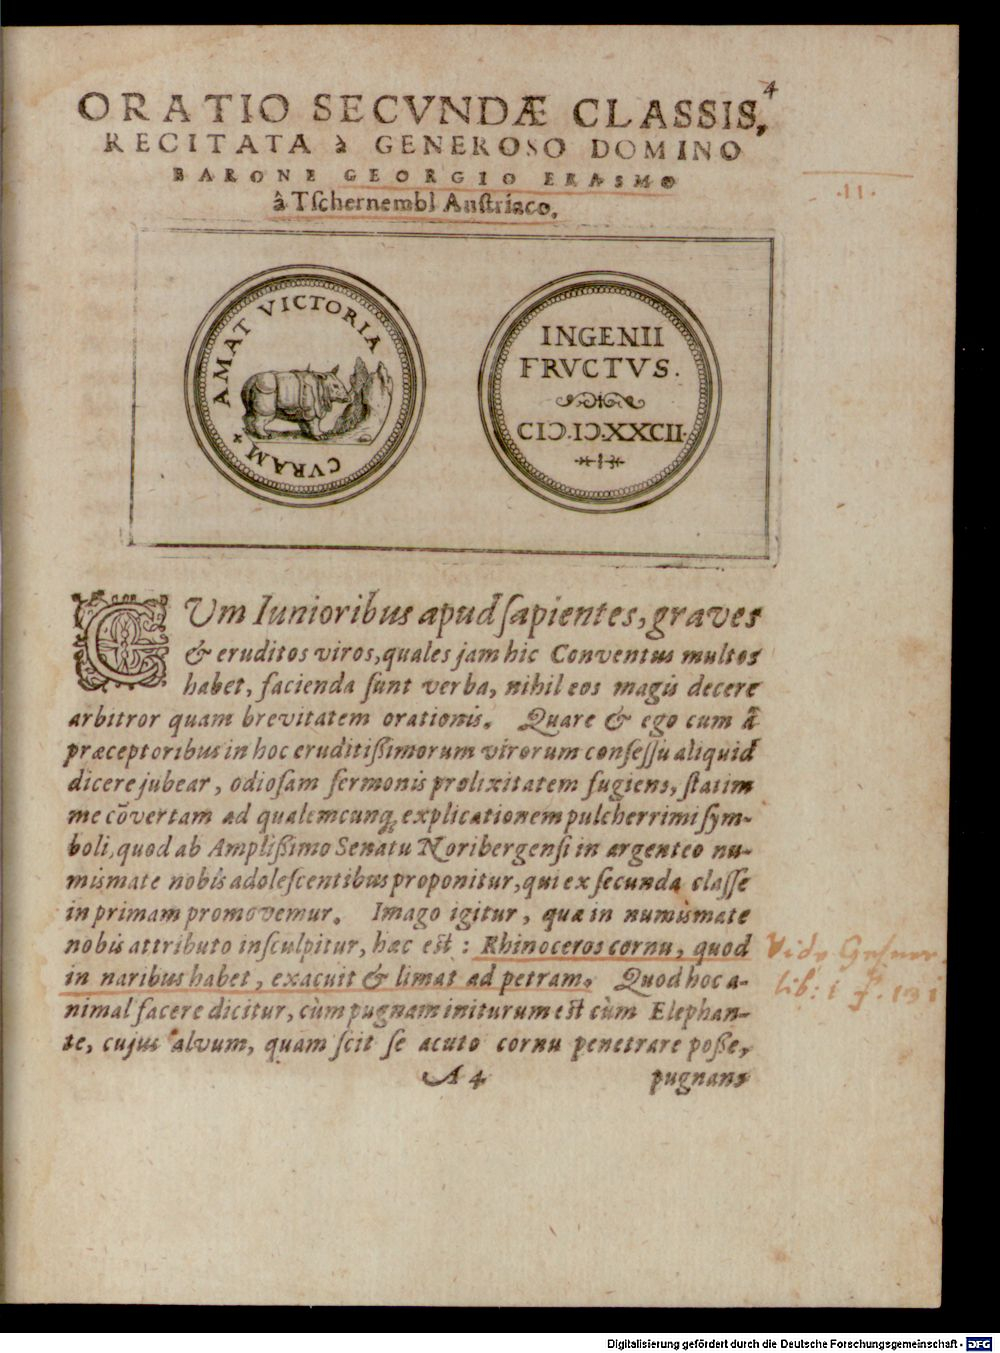 4
ORATIO SECVNDÆ CLASSIS,
RECITATA à GENEROSO DOMINO
BARONE GEORGIO ERASMO
â Tſchernembl Auſtriaco.
.11.
AMAT VICTORIA
CVRAM
INGENII
FRVCTVS.
CIↃ.IↃ.XXCII.
CUm Iunioribus apud ſapientes, graves
& eruditos viros, quales jam hic Conventus multos
habet, facienda ſunt verba, nihil eos magis decere
arbitror quam brevitatem orationis. Quare & ego cum â
præceptoribus in hoc eruditißimorum virorum conſeſſu aliquid
dicere jubear, odioſam ſermonis prolixitatem fugiens, ſtatim
me cōvertam ad qualemcunq; explicationem pulcherrimi ſym-
boli, quod ab Amplißimo Senatu Noribergenſi in argenteo nu-
mismate nobis adoleſcentibus proponitur, qui ex ſecunda claſſe
in primam promovemur. Imago igitur, quæ in numismate
nobis attributo inſculpitur, hæc eſt: Rhinoceros cornu, quod
in naribus habet, exacuit & limat ad petram. Quod hoc a-
nimal facere dicitur, cùm pugnam initurum eſt cùm Elephan-
te, cujus alvum, quam ſcit ſe acuto cornu penetrare poße,
Vide Gesner.
lib: 1 f. 131
A 4
pugnans
Digitalisierung gefördert durch die Deutsche Forschungsgemeinschaft - DFG